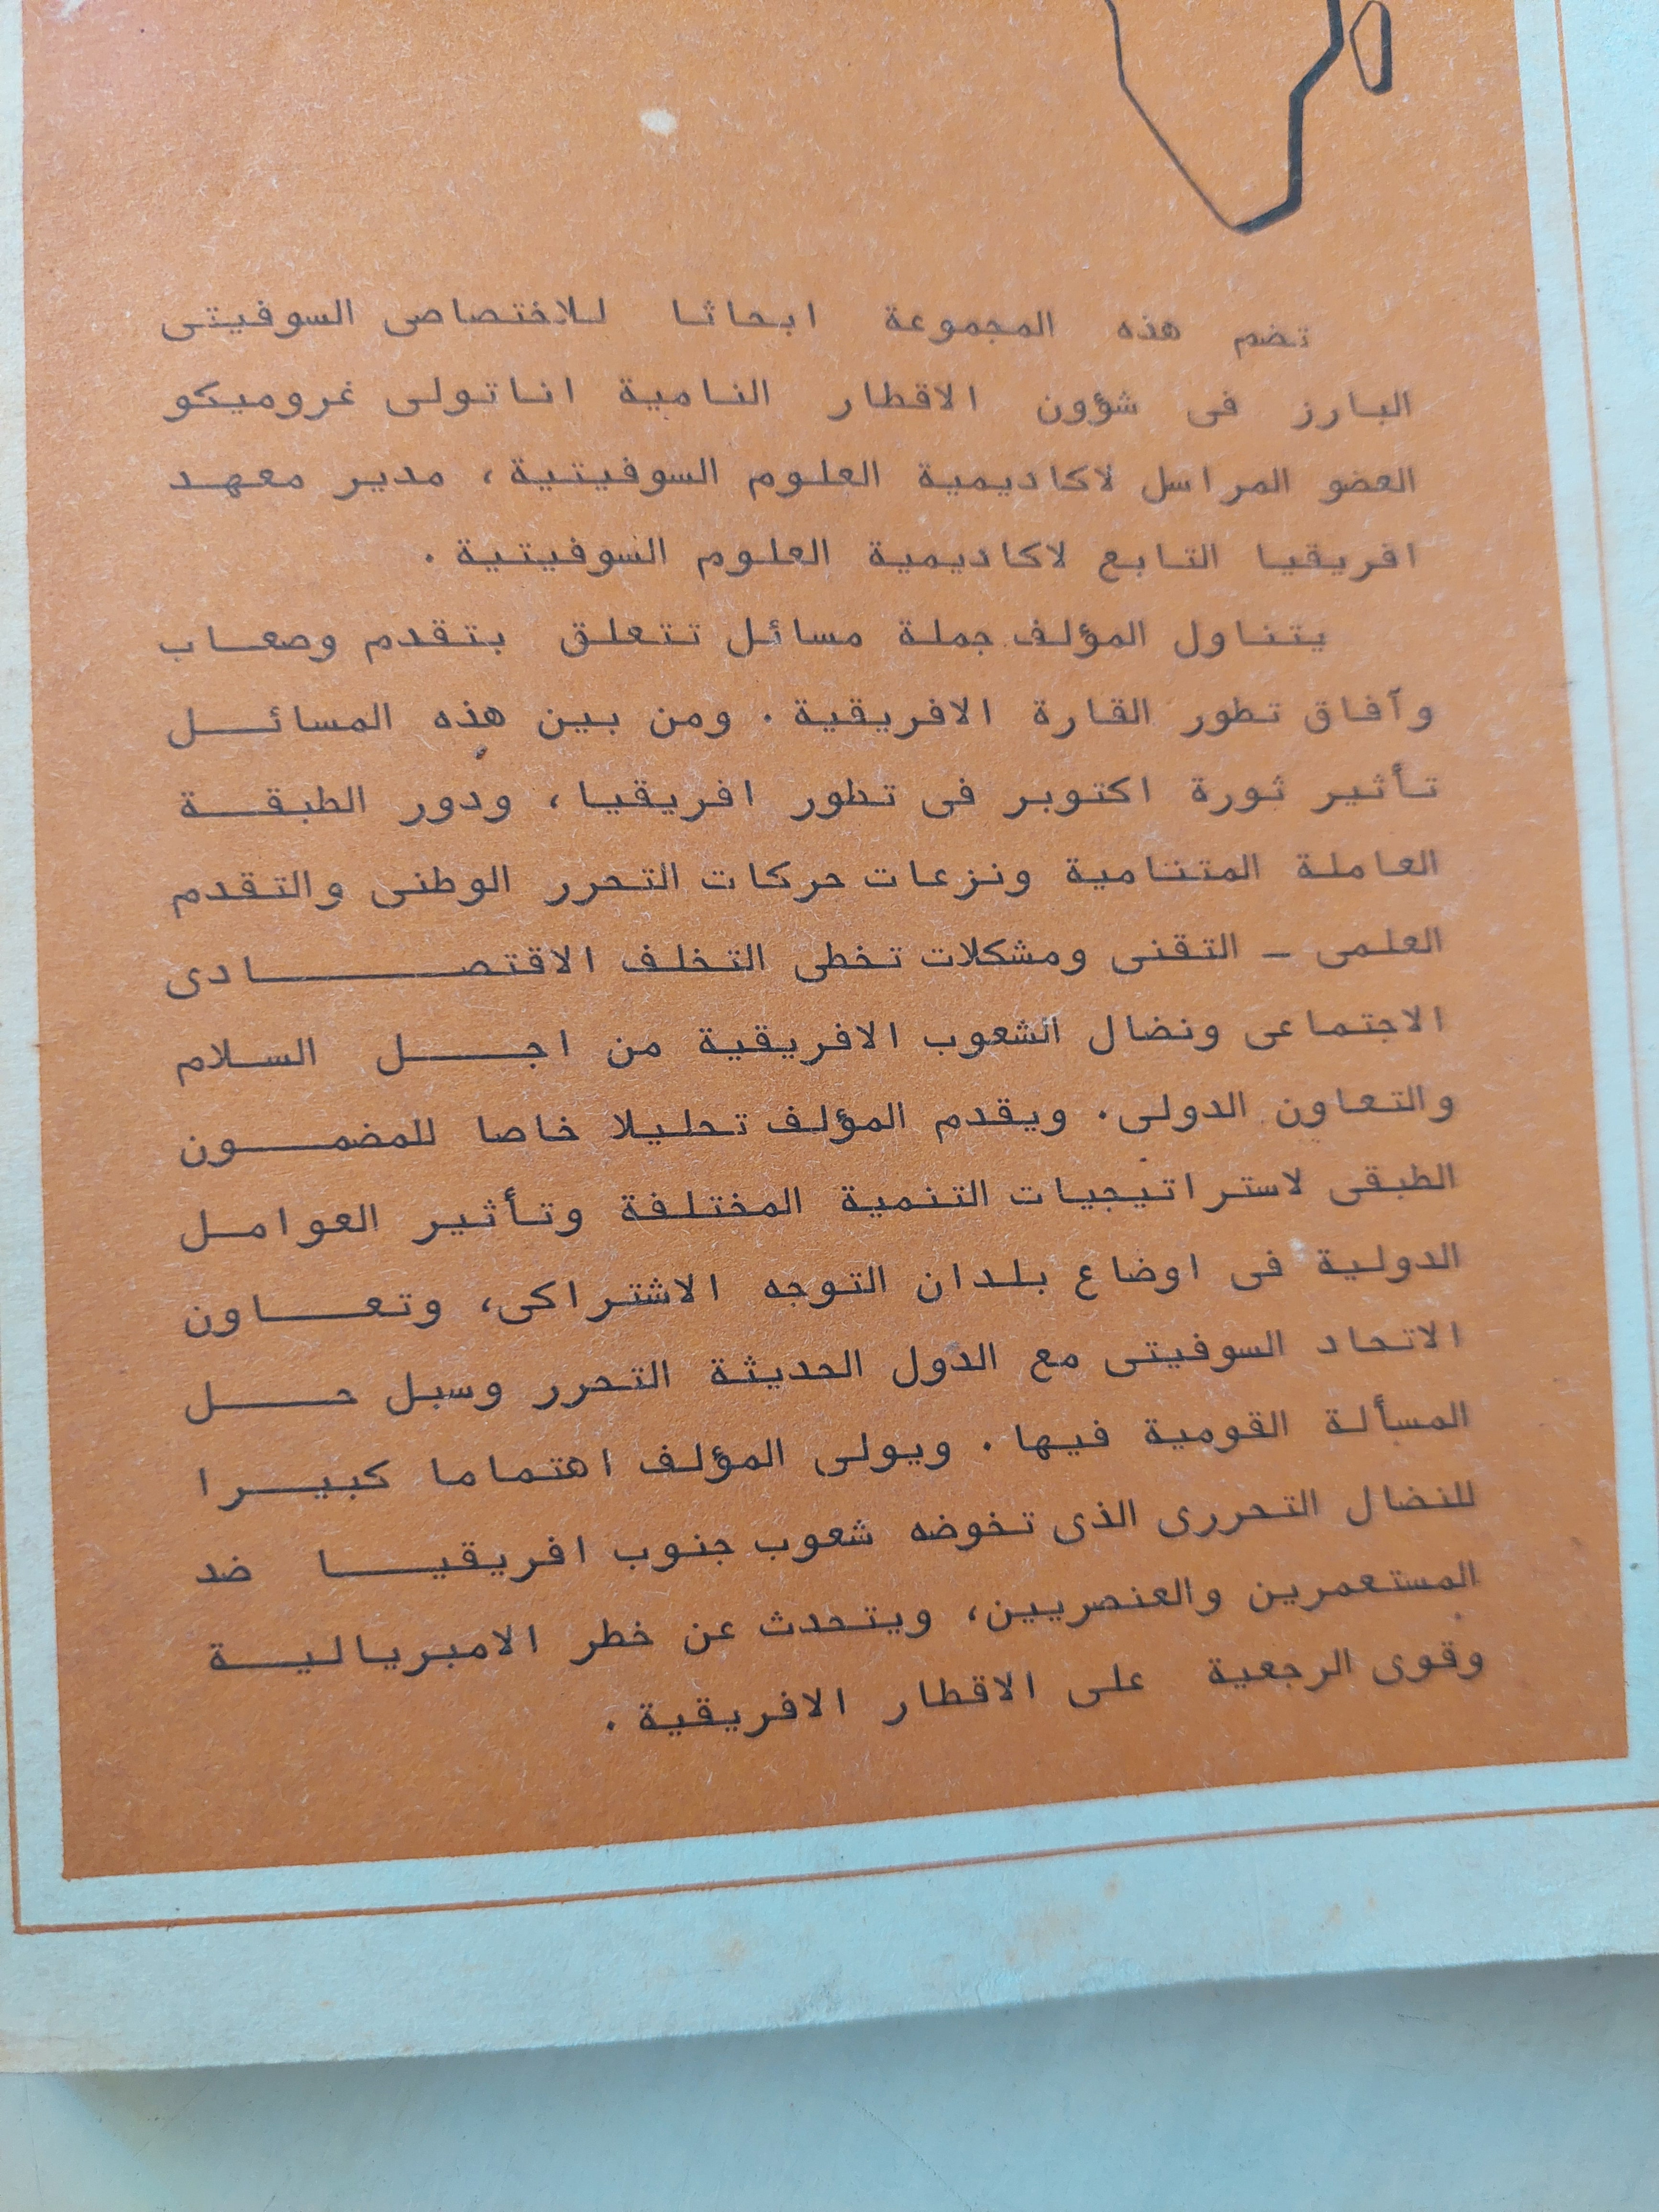 تضم هذه المجموعة ابحاثا للاختصاصى السوفيتى
البارز فى شؤون الاقطار النامية اناتولى غروميكو
العضو المراسل لاكاديمية العلوم السوفيتية، مدير معهد
افريقيا التابع لاكاديمية العلوم السوفيتية.
يتناول المؤلف جملة مسائل تتعلق بتقدم وصعاب
وآفاق تطور القارة الافريقية. ومن بين هذه المسائل
تأثير ثورة اكتوبر فى تطور افريقيا، ودور الطبقة
العاملة المتنامية ونزعات حركات التحرر الوطنى والتقدم
العلمى - التقنى ومشكلات تخطى التخلف الاقتصادى
الاجتماعى ونضال الشعوب الافريقية من اجل السلام
والتعاون الدولى. ويقدم المؤلف تحليلا خاصا للمضمون
الطبقى لاستراتيجيات التنمية المختلفة وتأثير العوامل
الدولية فى اوضاع بلدان التوجه الاشتراكى، وتعاون
الاتحاد السوفيتى مع الدول الحديثة التحرر وسبل حل
المسألة القومية فيها. ويولى المؤلف اهتماما كبيرا
للنضال التحررى الذى تخوضه شعوب جنوب افريقيا ضد
المستعمرين والعنصريين، ويتحدث عن خطر الامبريالية
وقوى الرجعية على الاقطار الافريقية.